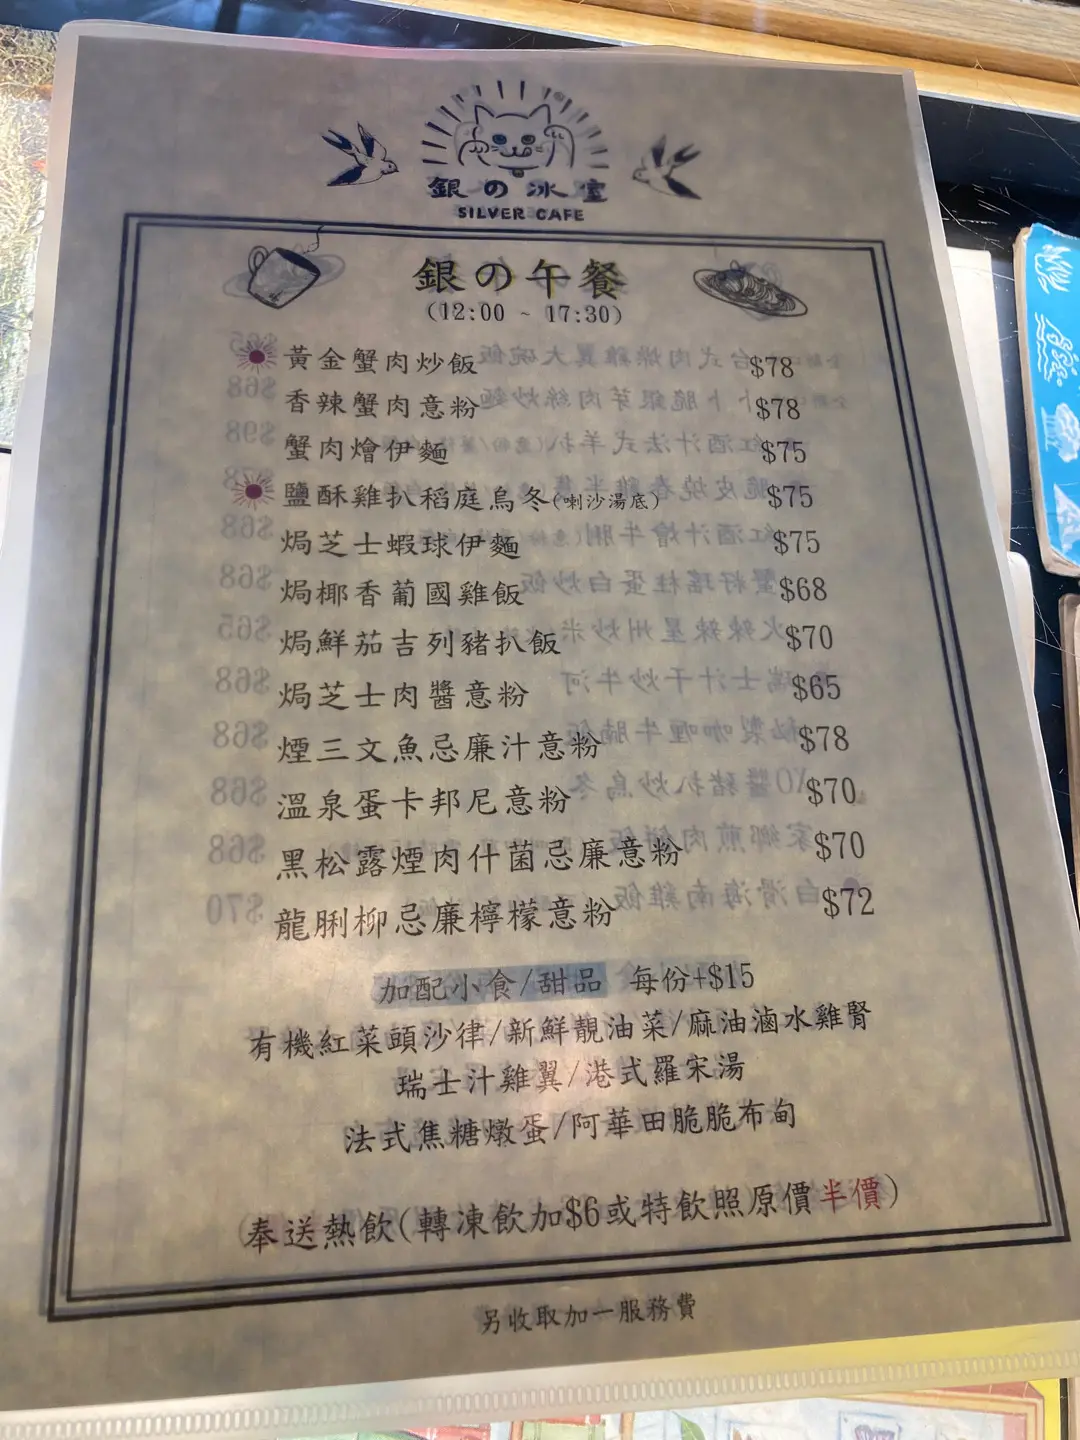 銀の冰室
SILVER CAFE
銀の午餐
(12:00 ~ 17:30)
黃金蟹肉炒飯 $78
香辣蟹肉意粉 $78
蟹肉燴伊麵 $75
鹽酥雞扒稻庭烏冬(喇沙湯底) $75
焗芝士蝦球伊麵 $75
焗椰香葡國雞飯 $68
焗鮮茄吉列豬扒飯 $70
焗芝士肉醬意粉 $65
煙三文魚忌廉汁意粉 $78
溫泉蛋卡邦尼意粉 $70
黑松露煙肉什菌忌廉意粉 $70
龍脷柳忌廉檸檬意粉 $72
加配小食/甜品 每份+$15
有機紅菜頭沙律/新鮮靚油菜/麻油滷水雞腎
瑞士汁雞翼/港式羅宋湯
法式焦糖燉蛋/阿華田脆脆布甸
奉送熱飲(轉凍飲加$6或特飲照原價半價)
另收取加一服務費